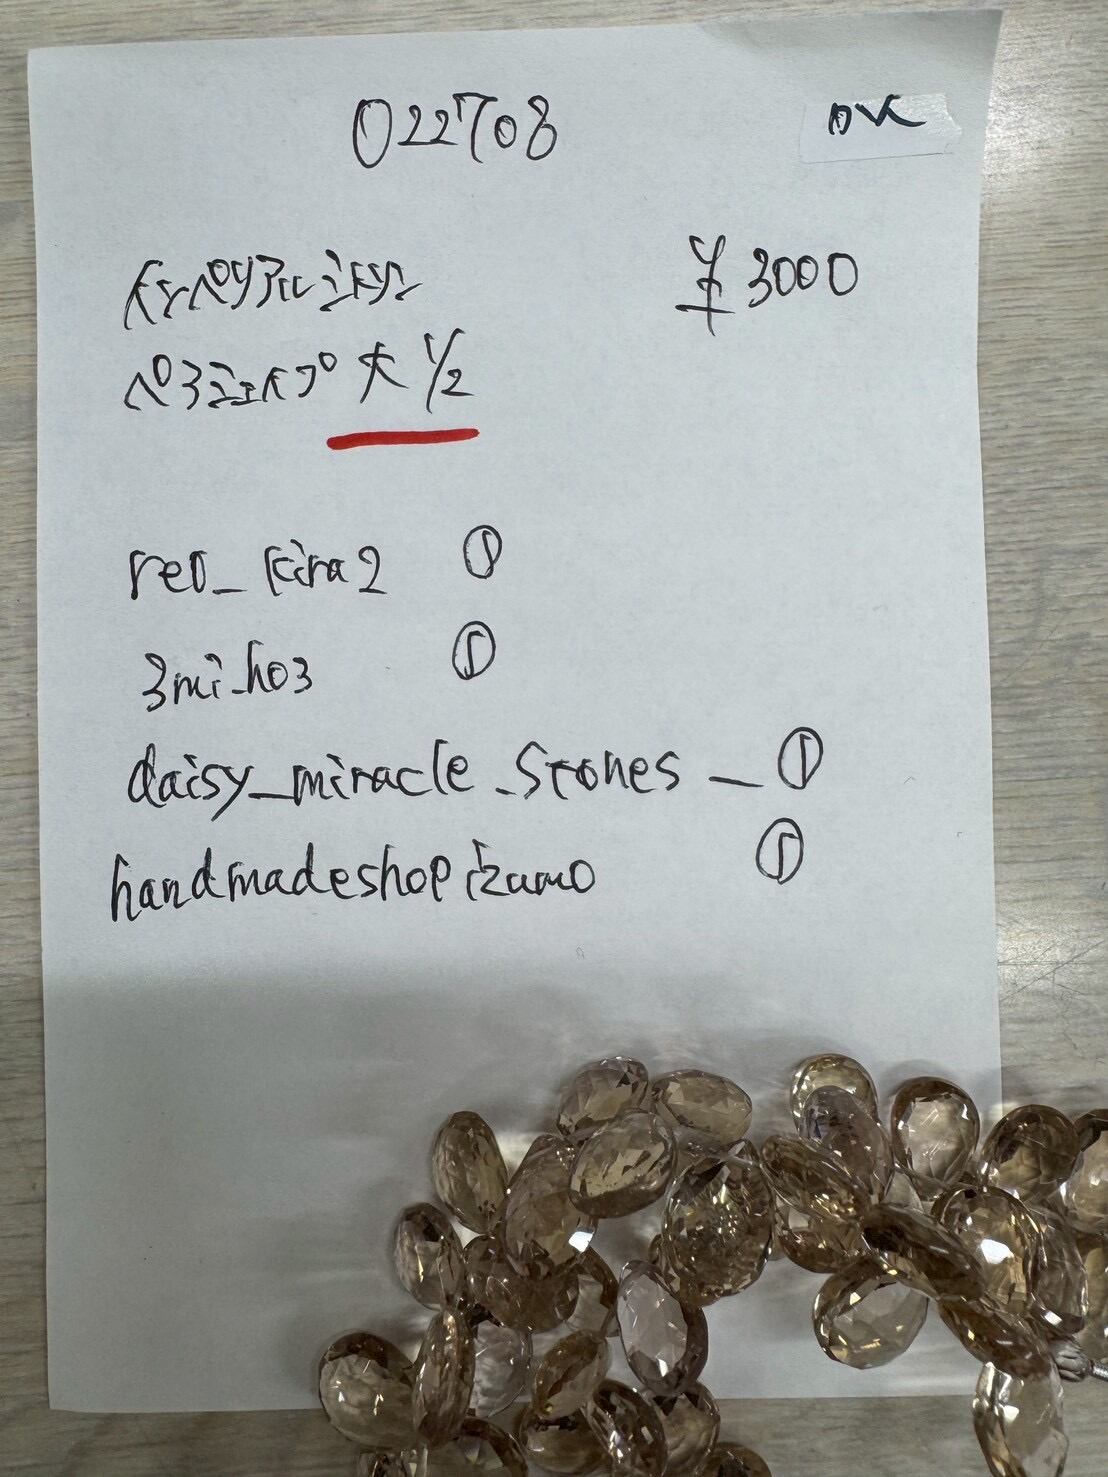 022708
インペリアルシトリン ¥3000
ペアシェイプ 大 1/2
reo_kira2 ①
3mi_ho3 ①
daisy_miracle_stones_ ①
handmadeshopizumo ①